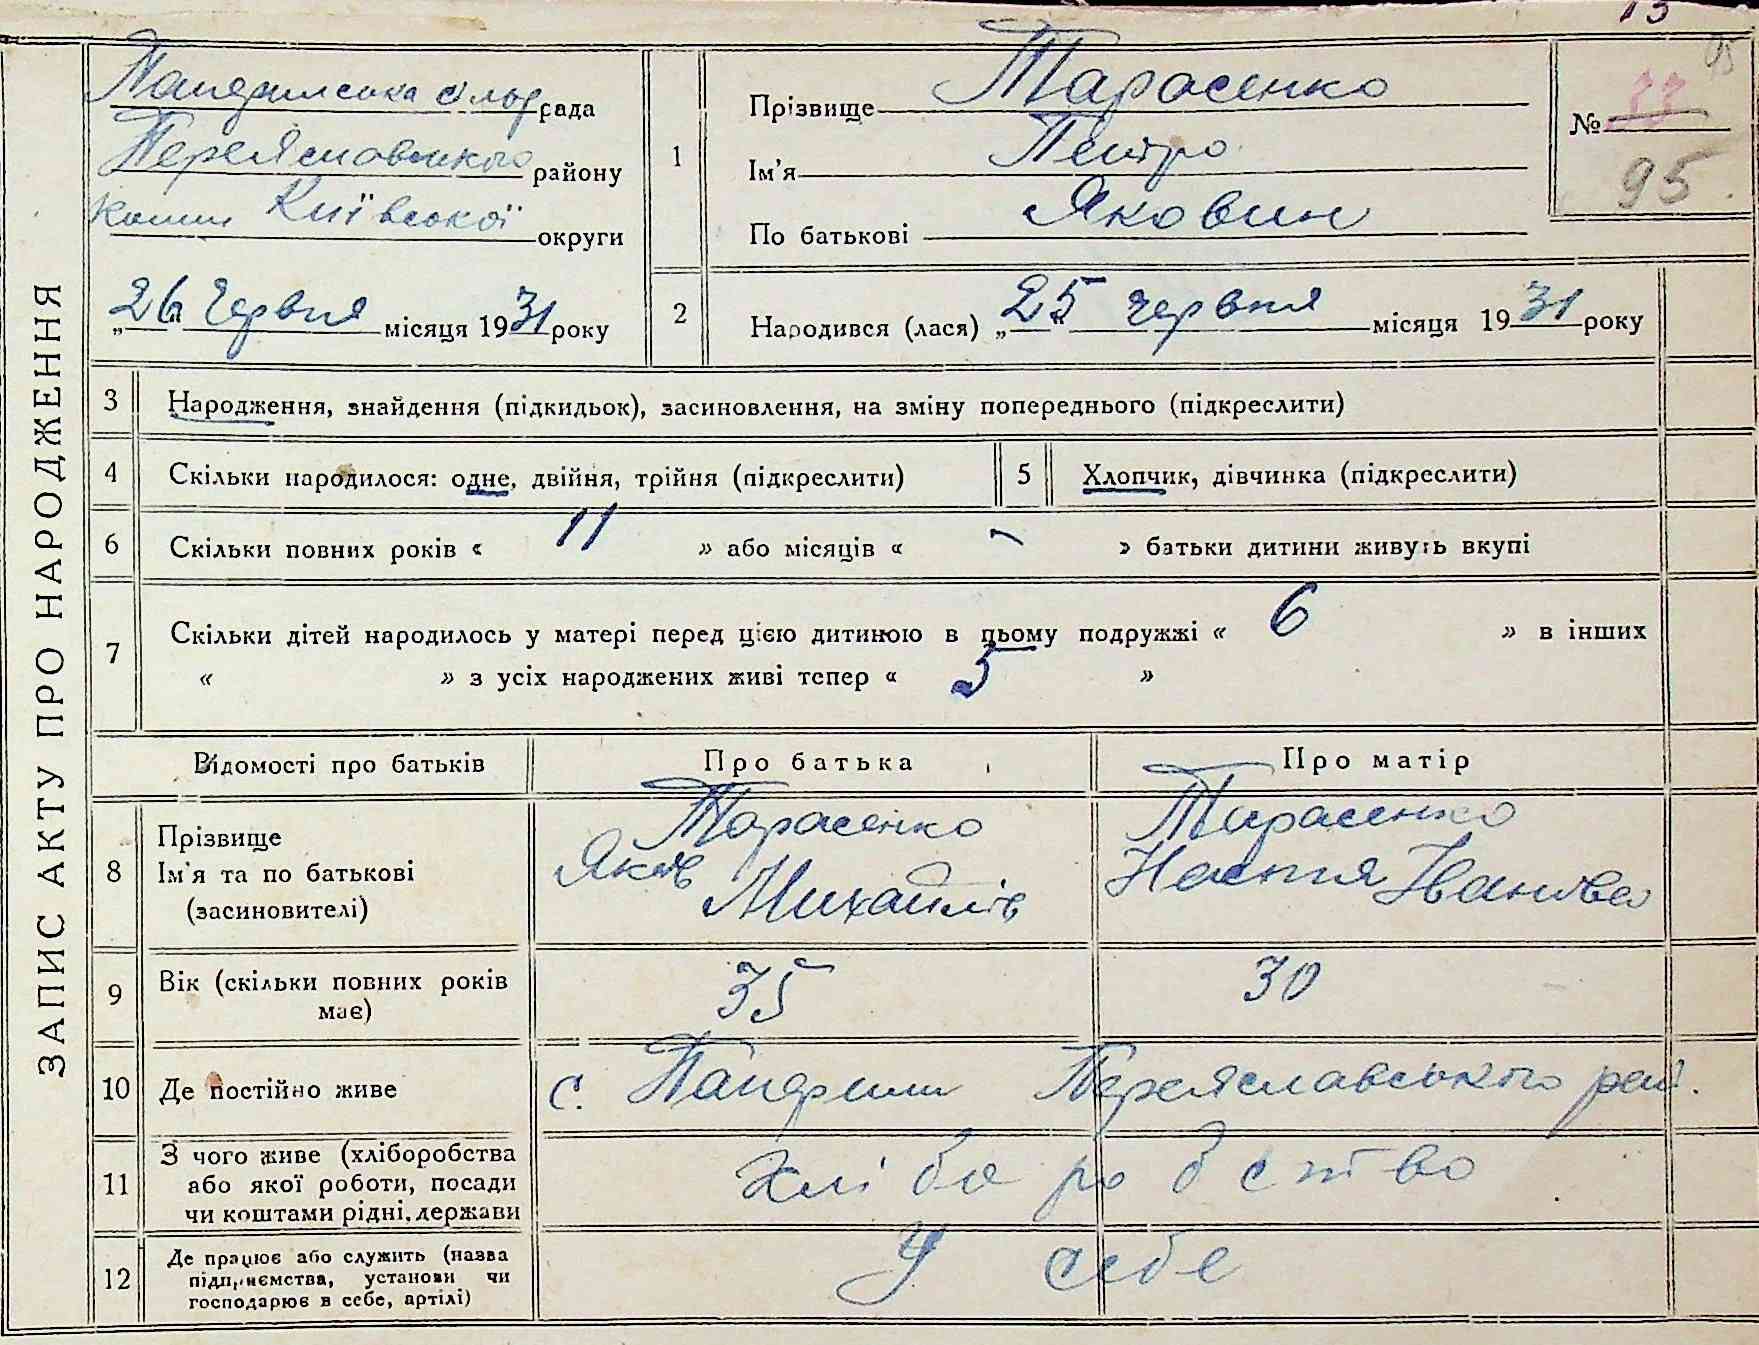 13
ЗАПИС АКТУ ПРО НАРОДЖЕННЯ
сільрада
Переяславського району
Київської округи
„26“ Червня місяця 1931 року
1
Прізвище Тарасенко
Ім'я Петро
По батькові Яковин
№ 77
95
2
Народився (лася) „25“ червня місяця 1931 року
3 Народження, знайдення (підкидьок), засиновлення, на зміну попереднього (підкреслити)
4 Скільки народилося: одне, двійня, трійня (підкреслити) 5 Хлопчик, дівчинка (підкреслити)
6 Скільки повних років « 11 » або місяців « – » батьки дитини живуть вкупі
7 Скільки дітей народилось у матері перед цією дитиною в цьому подружжі « 6 » в інших
« » з усіх народжених живі тепер « 5 »
Відомості про батьків Про батька Про матір
8 Прізвище
Ім'я та по батькові
(засиновителі)
Тарасенко
Яків
Михайлів
Тарасенко
Настя Іванівна
9 Вік (скільки повних років
має)
35 30
10 Де постійно живе с. Переяславського рай.
11 З чого живе (хліборобства
або якої роботи, посади
чи коштами рідні, держави
хліборобство
12 Де працює або служить (назва
підприємства, установи чи
господарює в себе, артілі)
У себе